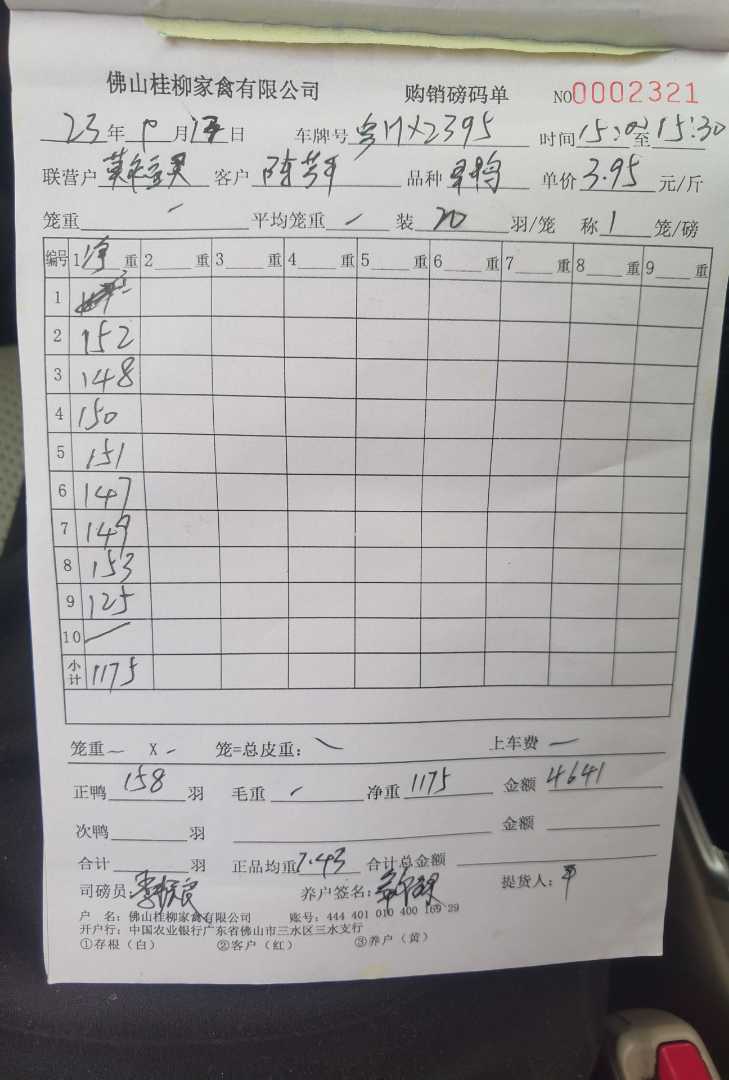 佛山桂柳家禽有限公司 购销磅码单 NO0002321
23年 月 日 车牌号 X2395 时间15:02至15:30
联营户 客户 陈 品种 单价3.95元/斤
笼重 - 平均笼重 - 装 20 羽/笼 称 1 笼/磅
编号 1 净 重 2 重 3 重 4 重 5 重 6 重 7 重 8 重 9 重
1
2 152
3 148
4 150
5 151
6 147
7 149
8 153
9 125
10 -
小计 1175
笼重 - X - 笼=总皮重: - 上车费 -
正鸭 158 羽 毛重 - 净重 1175 金额 4641
次鸭 羽 金额
合计 羽 正品均重 7.43 合计总金额
司磅员: 养户签名: 提货人:
户 名: 佛山桂柳家禽有限公司 账号: 444 401 010 400 169 29
开户行: 中国农业银行广东省佛山市三水区三水支行
①存根(白) ②客户(红) ③养户(黄)